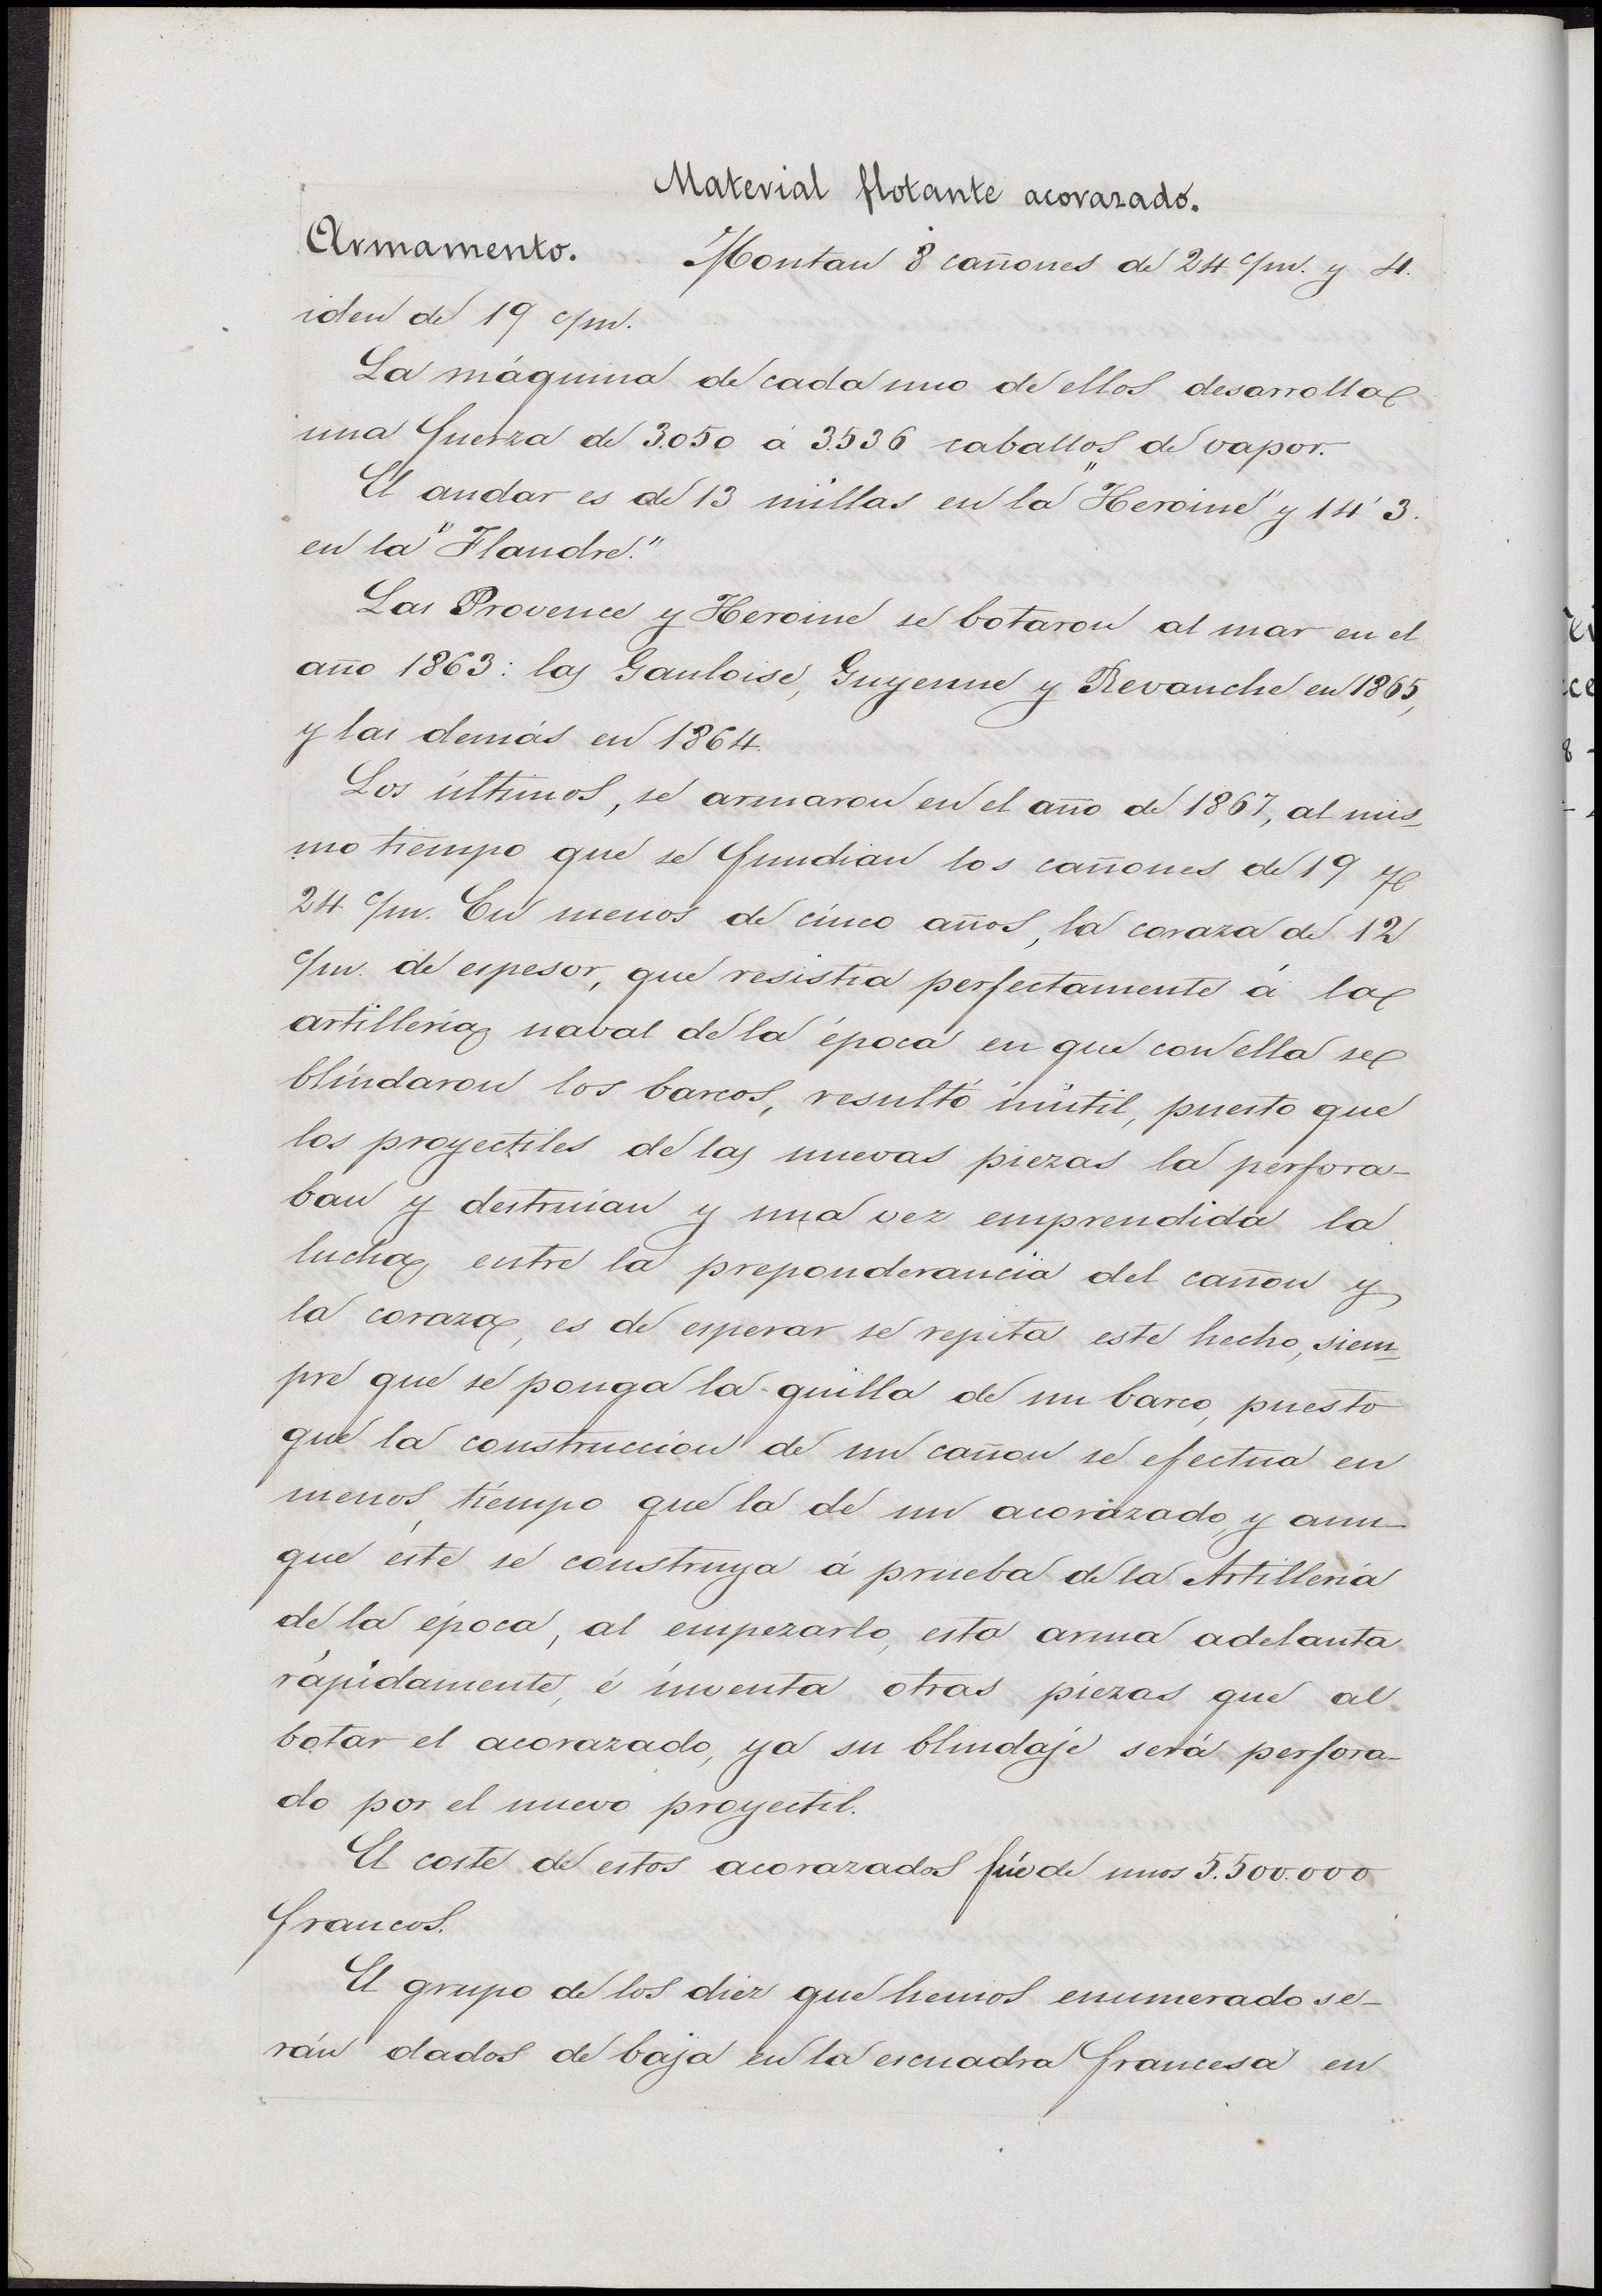 Material flotante acorazado.
Armamento. Montan 8 cañones de 24 c/m. y 4.
iden de 19 c/m.
La máquina de cada uno de ellos desarrolla
una fuerza de 3.050 á 3.536 caballos de vapor.
El andar es de 13 millas en la "Heroine" y 14'3.
en la "Flandre."
Las Provence y Heroine se botaron al mar en el
año 1863: las Gauloise, Guyenne y Revanche en 1865,
y las demás en 1864.
Los últimos, se armaron en el año de 1867, al mis-
mo tiempo que se fundian los cañones de 19 y
24 c/m. En menos de cinco años, la coraza de 12
c/m. de espesor, que resistia perfectamente á la
artilleria naval de la época en que con ella se
blindaron los barcos, resultó inútil, puesto que
los proyectiles de las nuevas piezas la perfora-
ban y destruian y una vez emprendida la
lucha entre la preponderancia del cañon y
la coraza, es de esperar se repita este hecho, siem-
pre que se ponga la quilla de un barco, puesto
que la construccion de un cañon se efectua en
menos tiempo que la de un acorazado, y aun-
que éste se construya á prueba de la Artilleria
de la época, al empezarlo, esta arma adelanta
rápidamente, é inventa otras piezas que al
botar el acorazado, ya su blindaje será perfora-
do por el nuevo proyectil.
El coste de estos acorazados fué de unos 5.500.000
francos.
El grupo de los diez que hemos enumerado se-
rán dados de baja en la escuadra francesa en